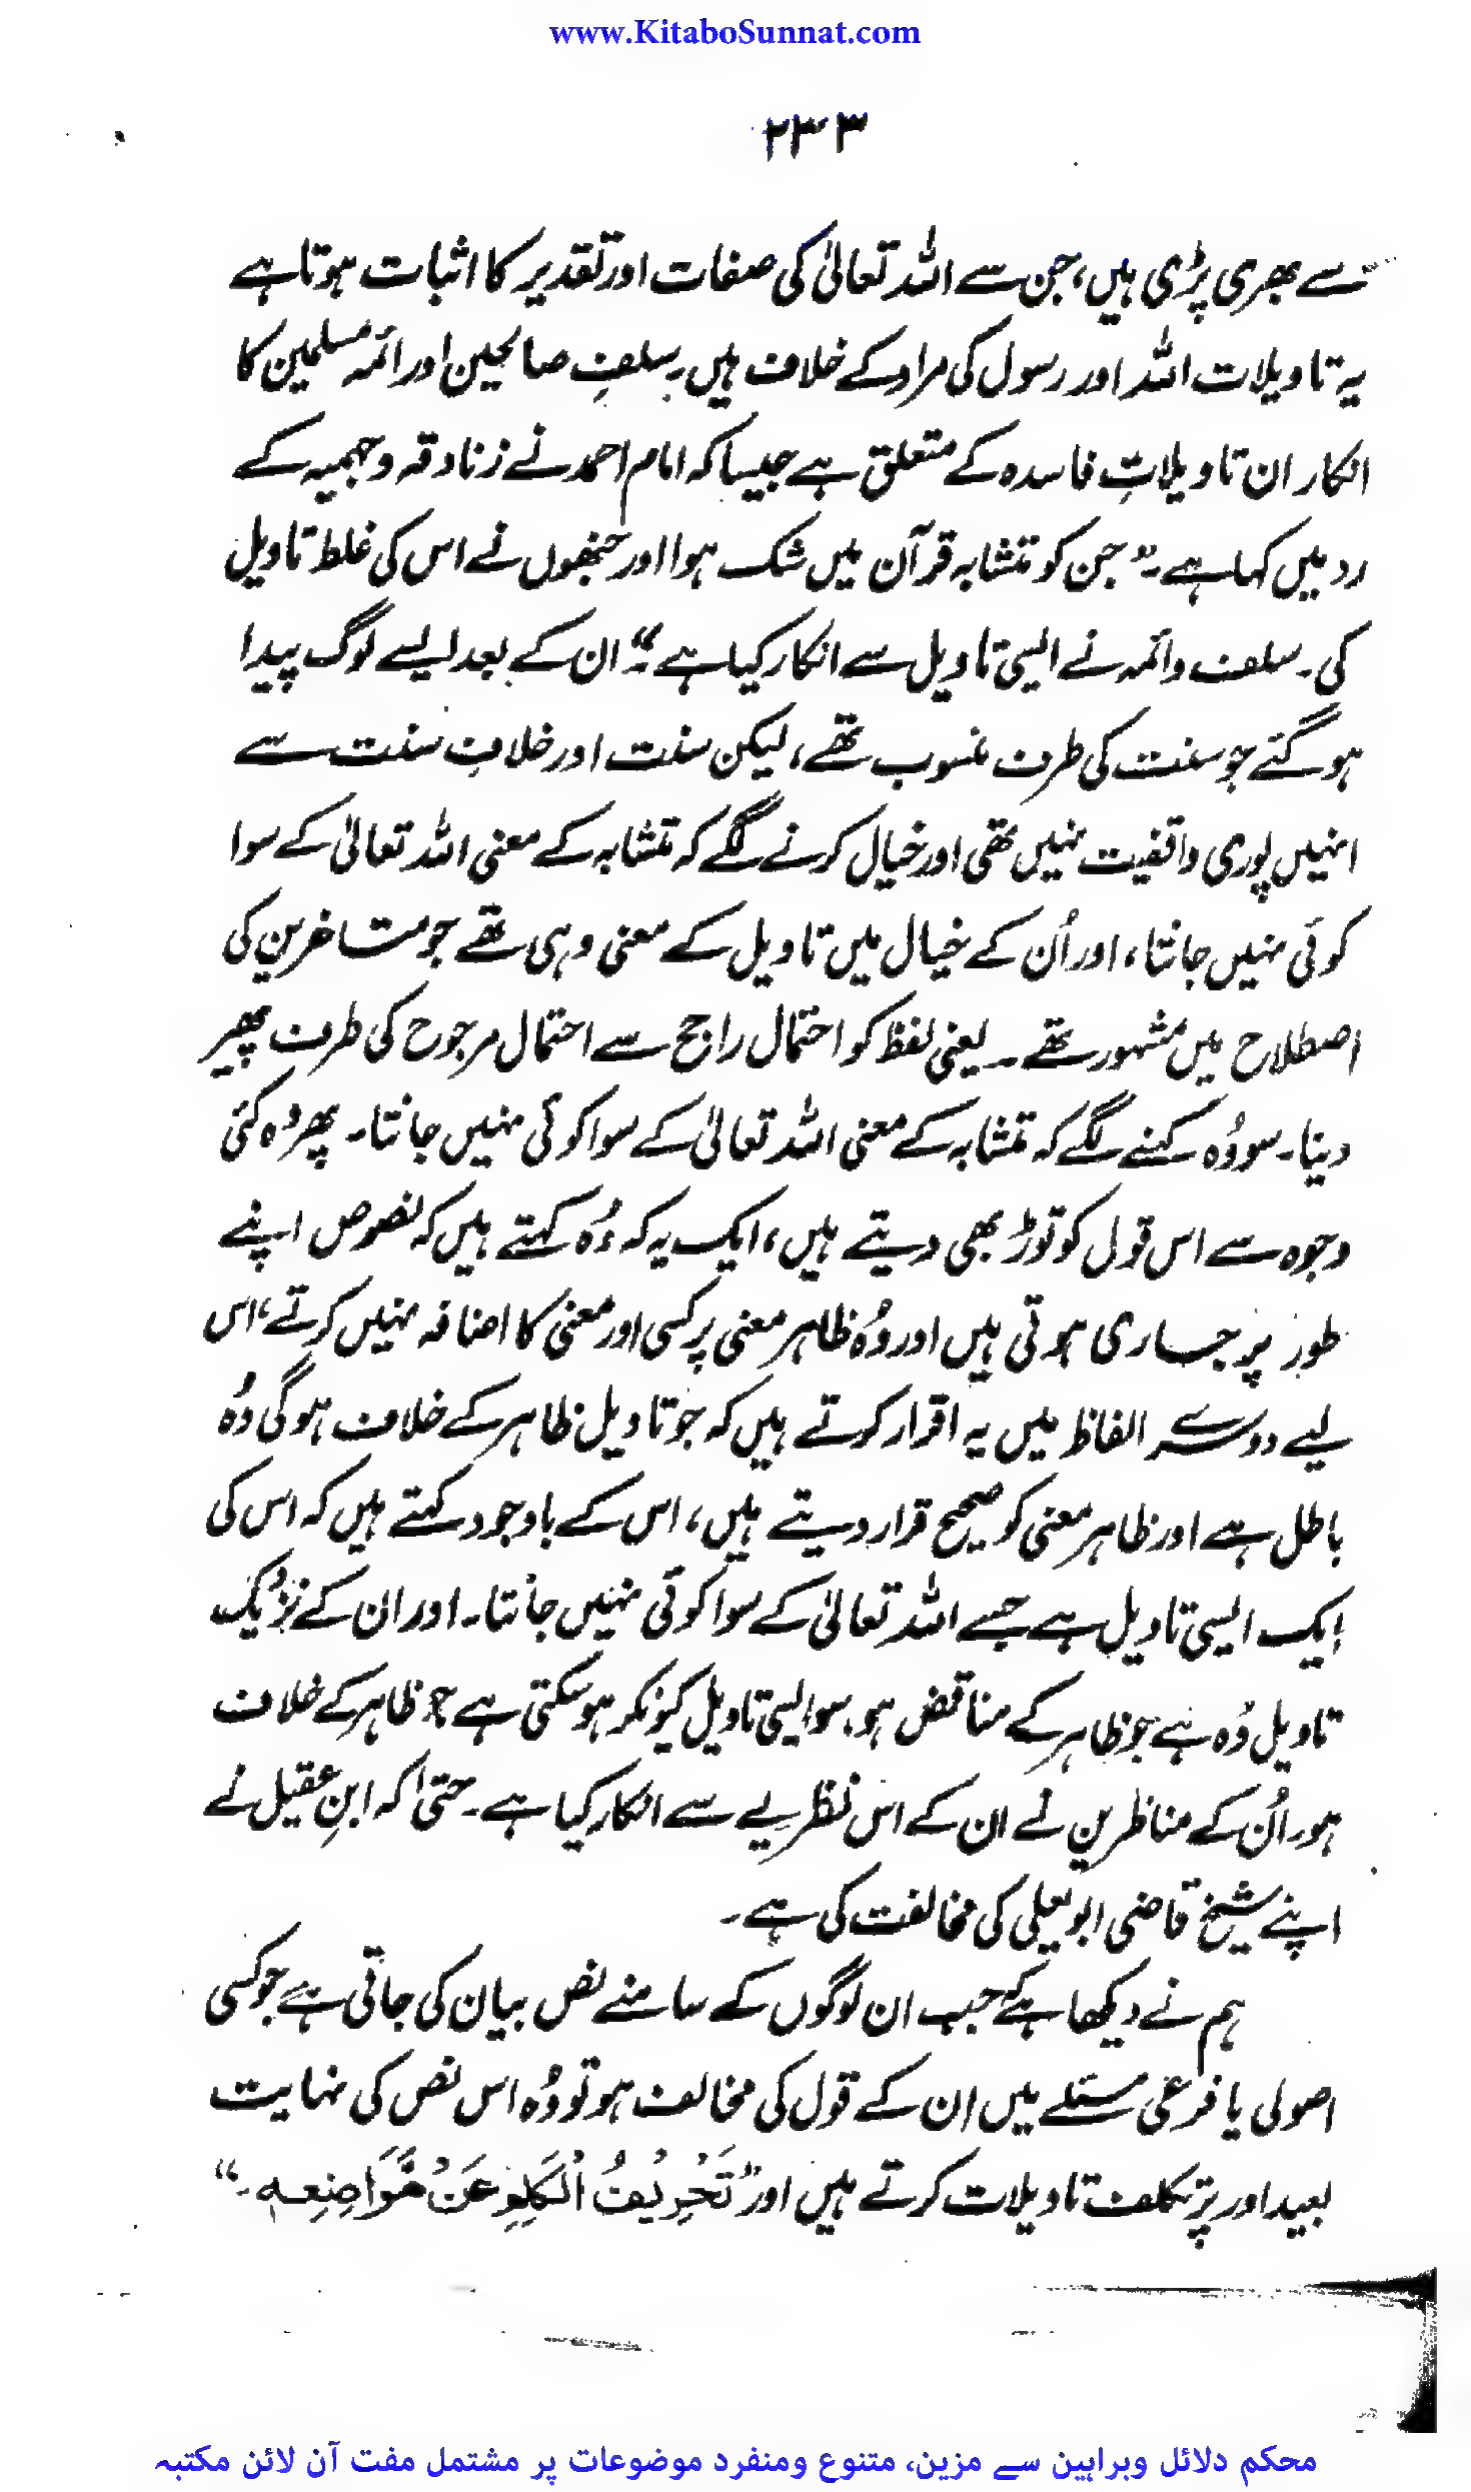 www.KitaboSunnat.com
۲۳۳
سے بھری پڑی ہیں، جن سے اللہ تعالیٰ کی صفات اور تقدیر کا اثبات ہوتا ہے
یہ تاویلات اللہ اور رسول کی مراد کے خلاف ہیں۔ سلفِ صالحین اور ائمہ مسلمین کا
انکار ان تاویلاتِ فاسدہ کے متعلق ہے جیسا کہ امام احمد نے زنادقہ و جہمیہ کے
رد میں کہا ہے۔ ”جن کو متشابہ قرآن میں شک ہوا اور جنھوں نے اس کی غلط تاویل
کی۔ سلف وائمہ نے ایسی تاویل سے انکار کیا ہے۔“ ان کے بعد ایسے لوگ پیدا
ہو گئے جو سنت کی طرف منسوب تھے، لیکن سنت اور خلافِ سنت سے
انہیں پوری واقفیت نہیں تھی اور خیال کرنے لگے کہ متشابہ کے معنی اللہ تعالیٰ کے سوا
کوئی نہیں جانتا، اور اُن کے خیال میں تاویل کے معنی وہی تھے جو متاخرین کی
اصطلاح میں مشہور تھے۔ یعنی لفظ کو احتمال راجح سے احتمال مرجوح کی طرف پھیر
دینا۔ سو وُہ کہنے لگے کہ متشابہ کے معنی اللہ تعالیٰ کے سوا کوئی نہیں جانتا۔ پھر وُہ کئی
وجوہ سے اس قول کو توڑ بھی دیتے ہیں، ایک یہ کہ وُہ کہتے ہیں کہ نصوص اپنے
طور پر جاری ہوتی ہیں اور وُہ ظاہر معنی پر کسی اور معنی کا اضافہ نہیں کرتے، اس
لیے دوسرے الفاظ میں یہ اقرار کرتے ہیں کہ جو تاویل ظاہر کے خلاف ہوگی وُہ
باطل ہے اور ظاہر معنی کو صحیح قرار دیتے ہیں، اس کے باوجود کہتے ہیں کہ اس کی
ایک ایسی تاویل ہے جسے اللہ تعالیٰ کے سوا کوئی نہیں جانتا۔ اور ان کے نزدیک
تاویل وُہ ہے جو ظاہر کے مناقض ہو۔ سو ایسی تاویل کیونکر ہو سکتی ہے جو ظاہر کے خلاف
ہو۔ اُن کے مناظرین نے ان کے اس نظریے سے انکار کیا ہے۔ حتیٰ کہ ابنِ عقیل نے
اپنے شیخ قاضی ابو یعلی کی مخالفت کی ہے۔
ہم نے دیکھا ہے کہ جب ان لوگوں کے سامنے نص بیان کی جاتی ہے جو کسی
اصولی یا فرعی مسئلے میں ان کے قول کی مخالف ہو تو وُہ اس نص کی نہایت
بعید اور پرتکلف تاویلات کرتے ہیں اور ”تَحْرِيْفُ الْكَلِمِ عَنْ مَّوَاضِعِهٖ۔“
محکم دلائل وبراہین سے مزین، متنوع ومنفرد موضوعات پر مشتمل مفت آن لائن مکتبہ